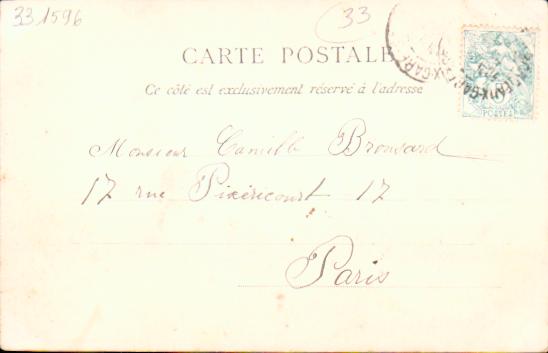 33 1596
33
CARTE POSTALE
Ce côté est exclusivement réservé à l'adresse
POSTES
Monsieur Camille Broussard
17 rue Pixéricourt 17
Paris